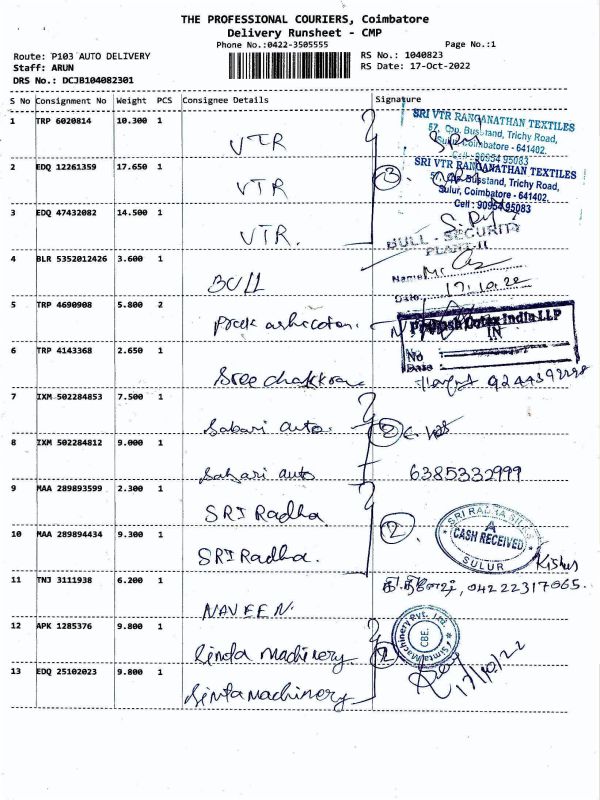 THE PROFESSIONAL COURIERS, Coimbatore
Delivery Runsheet - CMP
Phone No.:0422-3505555
Page No.:1
Route: P103 AUTO DELIVERY
RS No.: 1040823
Staff: ARUN
RS Date: 17-Oct-2022
DRS No.: DCJB104082301
S No Consignment No Weight PCS Consignee Details Signature
1 TRP 6020814 10.300 1 VTR
SRI VTR RANGANATHAN TEXTILES
57, Opp. Busstand, Trichy Road,
Sulur, Coimbatore - 641402.
Cell : 90954 95083
2 EDQ 12261359 17.650 1 VTR
3.
SRI VTR RANGANATHAN TEXTILES
57, Opp. Busstand, Trichy Road,
Sulur, Coimbatore - 641402.
Cell : 90954 95083
3 EDQ 47432082 14.500 1 VTR.
BULL - SECURITY
PLANT-II
4 BLR 5352012426 3.600 1 BULL
Name: Mr.
Date: 17.10.22
5 TRP 4690908 5.800 2
India LLP
IN
No
Date
6 TRP 4143368 2.650 1 Sree
9244392298
7 IXM 502284853 7.500 1 Sabari auto.
2
8 IXM 502284812 9.000 1 Sabari auto
6385332999
9 MAA 289893599 2.300 1 SRI Radha
2.
SRI RADHA SILKS
CASH RECEIVED
SULUR
10 MAA 289894434 9.300 1 SRI Radha.
Kishor
11 TNJ 3111938 6.200 1 NAVEEN.
04222317065.
12 APK 1285376 9.800 1 Simta Machinery
2
Simta Machinery Pvt. Ltd.
CBE.
13 EDQ 25102023 9.800 1 Simta Machinery
17/10/22